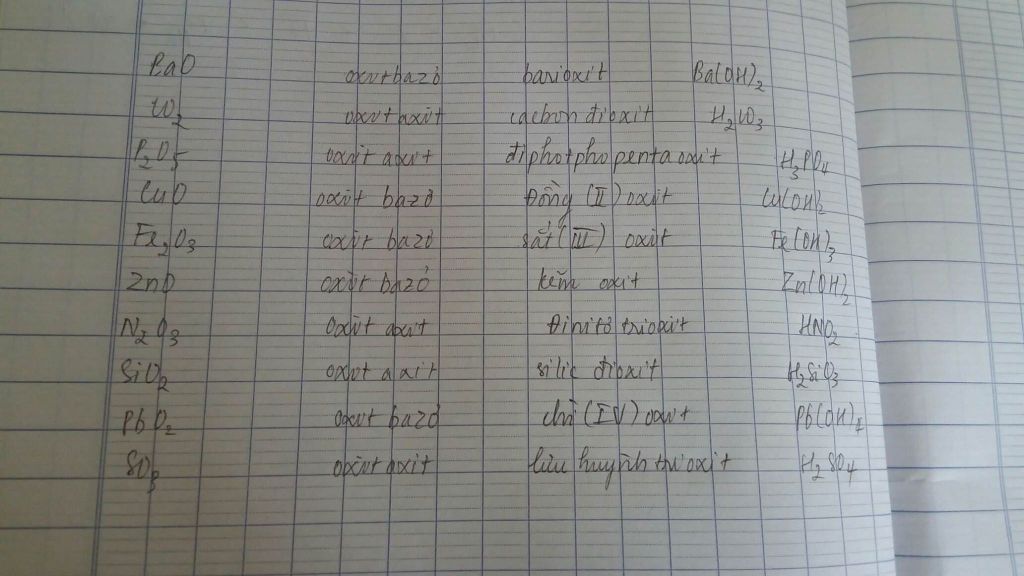 BaO oxit bazơ bari oxit Ba(OH)₂
CO₂ oxit axit cacbon đioxit H₂CO₃
P₂O₅ oxit axit điphotpho penta oxit H₃PO₄
CuO oxit bazơ Đồng (II) oxit Cu(OH)₂
Fe₂O₃ oxit bazơ sắt (III) oxit Fe(OH)₃
ZnO oxit bazơ kẽm oxit Zn(OH)₂
N₂O₃ oxit axit Đinitơ trioxit HNO₂
SiO₂ oxit axit silic đioxit H₂SiO₃
PbO₂ oxit bazơ chì (IV) oxit
SO₃ oxit axit lưu huỳnh trioxit H₂SO₄